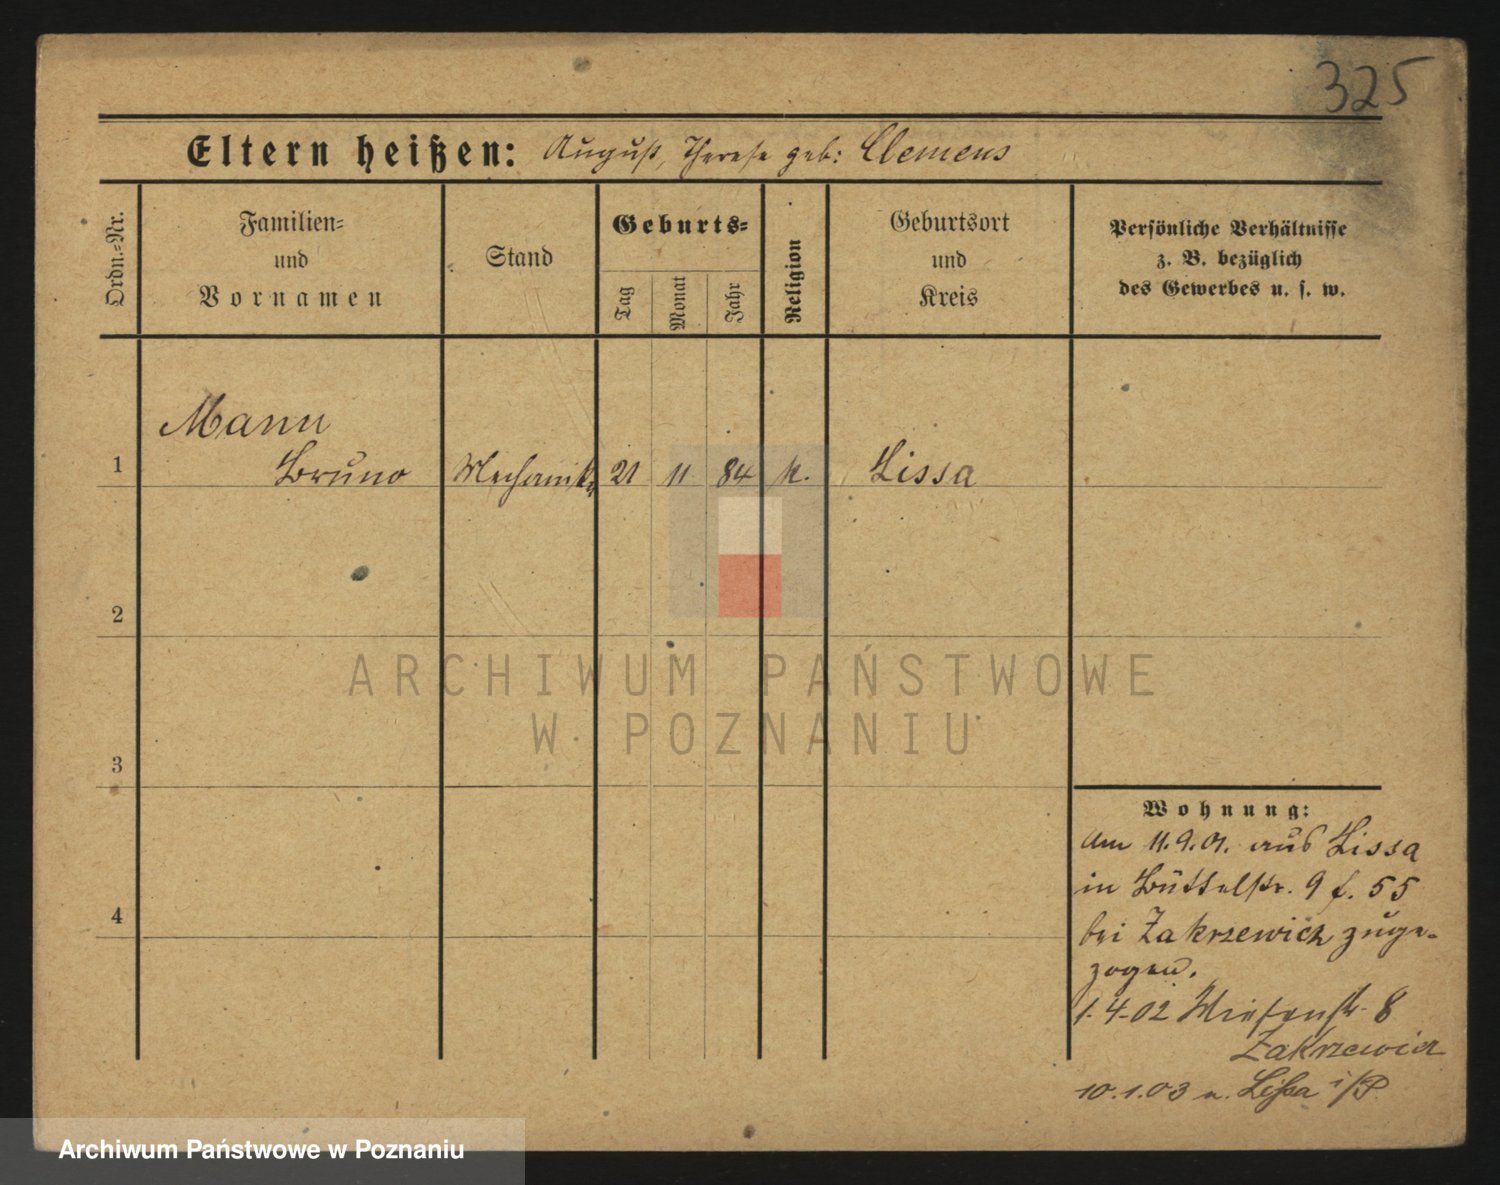 325
Eltern heißen: August, Therese geb: Clemens
Ordn.-Nr.
Familien-
und
Vornamen
Stand
Geburts-
Tag
Monat
Jahr
Religion
Geburtsort
und
Kreis
Persönliche Verhältnisse
z. B. bezüglich
des Gewerbes u. s. w.
Mann
1 Bruno Mechaniker 21 11 84 k. Lissa
2
3
4
Wohnung:
Am 11.9.01. aus Lissa
in Büttelstr. 9 f. 55
bei Zakrzewicz zuge-
zogen.
1.4.02 Wiesenstr. 8
Zakrzewicz
10.1.03 n. Lissa i/P.
ARCHIWUM PAŃSTWOWE
W POZNANIU
Archiwum Państwowe w Poznaniu